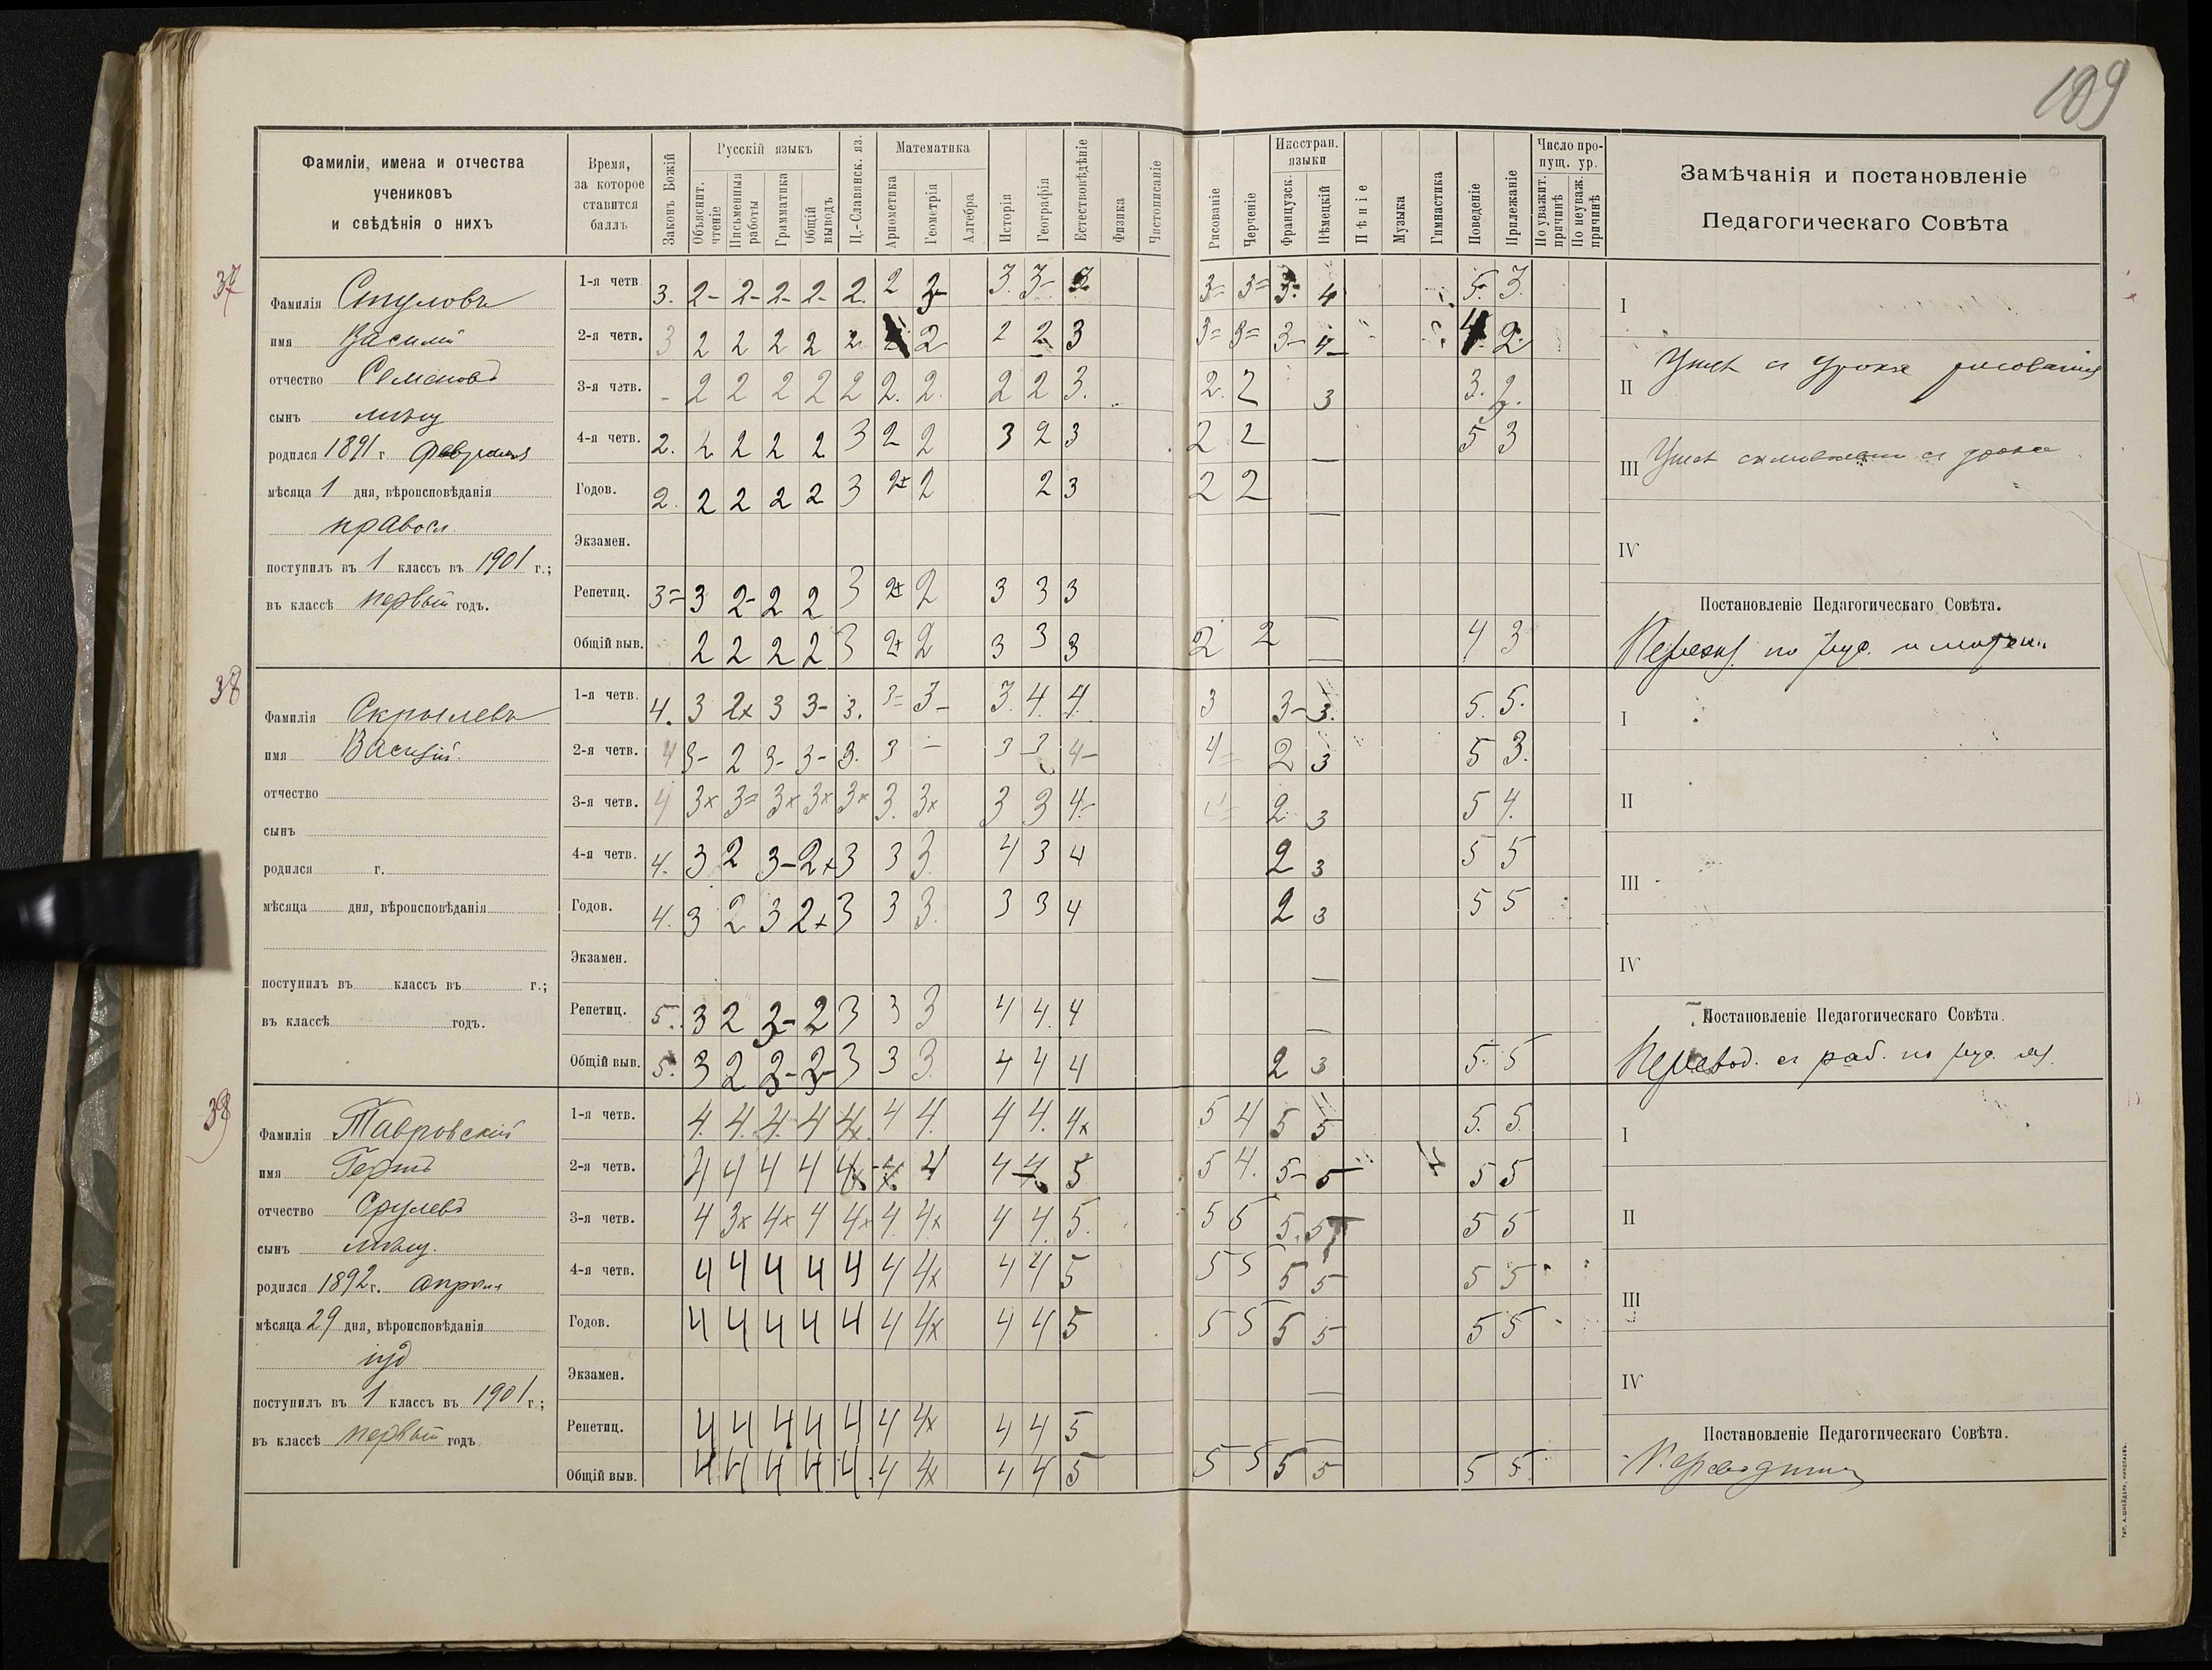 109
Фамиліи, имена и отчества
учениковъ
и свѣдѣнія о нихъ
Время,
за которое
ставится
баллъ
Законъ Божій
Русскій языкъ
Объяснит. чтеніе
Письменныя работы
Грамматика
Общій выводъ
Ц.-Славянск. яз.
Математика
Ариѳметика
Геометрія
Алгебра
Исторія
Географія
Естествовѣдѣніе
Физика
Чистописаніе
Рисованіе
Черченіе
Иностран.
языки
Французск.
Нѣмецкій
Пѣніе
Музыка
Гимнастика
Поведеніе
Прилежаніе
Число про-
пущ. ур.
По уважит. причинѣ
По неуваж. причинѣ
Замѣчанія и постановленіе
Педагогическаго Совѣта
37
Фамилія Стуловъ
имя Василій
отчество Семеновъ
сынъ мѣщ
родился 1891 г. февраля
мѣсяца 1 дня, вѣроисповѣданія
правосл.
поступилъ въ 1 классъ въ 1901 г.;
въ классѣ первый годъ.
1-я четв. 3. 2- 2- 2- 2- 2. 2 3- 3. 3- 3 3- 3= 3- 4 5. 3.
2-я четв. 3 2 2 2 2 2. 2 2 2 3 3= 3= 3- 4- 4 2.
3-я четв. - 2 2 2 2 2 2. 2. 2 2 3. 2. 2 3 3. 2.
4-я четв. 2. 2 2 2 2 3 2 2 3 2 3 2 2 5 3
Годов. 2. 2 2 2 2 3 2+ 2 2 3 2 2
Экзамен.
Репетиц. 3= 3 2- 2 2 3 2+ 2 3 3 3
Общій выв. 2 2 2 2 3 2+ 2 3 3 3 2 2 4 3
I
II
III
IV
Постановленіе Педагогическаго Совѣта.
38
Фамилія Скрылевъ
имя Василій.
отчество
сынъ
родился г.
мѣсяца дня, вѣроисповѣданія
поступилъ въ классъ въ г.;
въ классѣ годъ.
1-я четв. 4. 3 2x 3 3- 3. 3= 3- 3. 4. 4. 3 3- 3. 5. 5.
2-я четв. 4 3- 2 3- 3- 3. 3 - 3 3 4- 4= 2 3 5 3.
3-я четв. 4 3x 3= 3x 3x 3x 3. 3x 3 3 4- 2. 3 5 4.
4-я четв. 4. 3 2 3- 2+ 3 3 3. 4 3 4 2 3 5 5
Годов. 4. 3 2 3 2+ 3 3 3. 3 3 4 2 3 5 5
Экзамен.
Репетиц. 5. 3 2 3- 2 3 3 3 4 4. 4
Общій выв. 5. 3 2 3- 3- 3 3 3. 4 4 4 2 3 5. 5
I
II
III
IV
Постановленіе Педагогическаго Совѣта.
Перевод. съ раб. по рус. яз.
39
Фамилія Тавровскій
имя Гершъ
отчество Срулевъ
сынъ мѣщ.
родился 1892 г. апрѣля
мѣсяца 29 дня, вѣроисповѣданія
іуд
поступилъ въ 1 классъ въ 1901 г.;
въ классѣ первый годъ
1-я четв. 4. 4. 4. 4 4x. 4 4. 4 4. 4x 5 4 5 5 5. 5.
2-я четв. 4 4 4 4 4x 4x 4 4 4 5 5 4. 5- 5 5 5
3-я четв. 4 3x 4x 4 4x 4 4x 4 4. 5. 5 5 5. 5 5 5
4-я четв. 4 4 4 4 4 4 4x 4 4 5 5 5 5 5 5 5
Годов. 4 4 4 4 4 4 4x 4 4 5 5 5 5 5 5 5
Экзамен.
Репетиц. 4 4 4 4 4 4 4x 4 4 5
Общій выв. 4 4 4 4 4 4 4x 4 4 5 5 5 5 5 5 5
I
II
III
IV
Постановленіе Педагогическаго Совѣта.